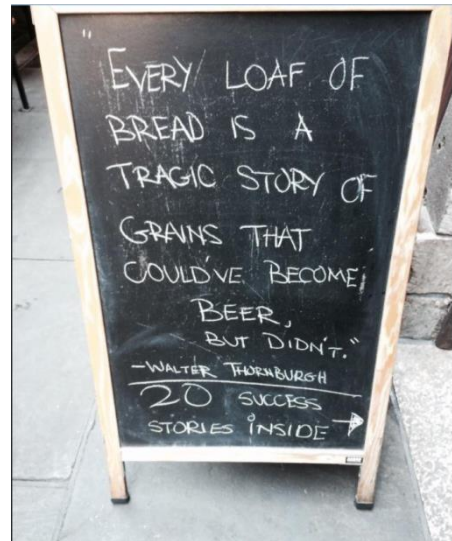 "EVERY LOAF OF
BREAD IS A
TRAGIC STORY OF
GRAINS THAT
COULD'VE BECOME
BEER,
BUT DIDN'T."
-WALTER THORNBURGH
20 SUCCESS
STORIES INSIDE →